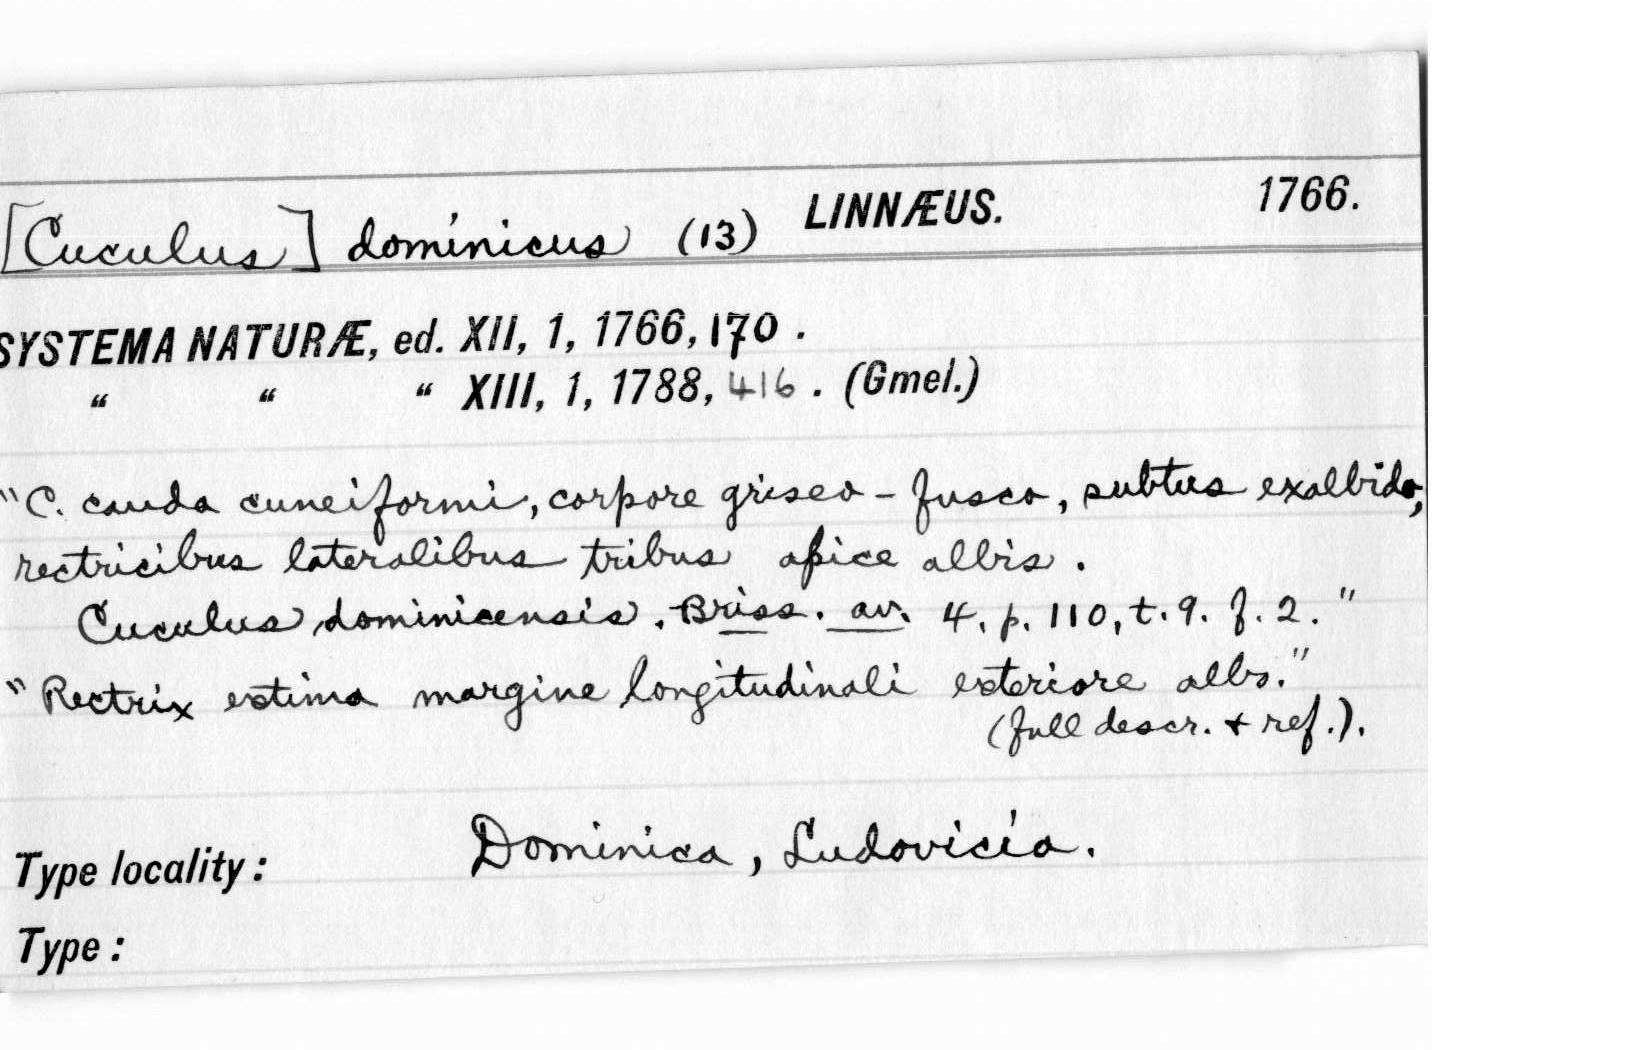 [Cuculus] dominicus (13) LINNÆUS. 1766.
SYSTEMA NATURÆ, ed. XII, 1, 1766, 170.
“ “ “ XIII, 1, 1788, 416. (Gmel.)
"C. cauda cuneiformi, corpore griseo-fusco, subtus exalbido,
rectricibus lateralibus tribus apice albis.
Cuculus dominicensis. Briss. av. 4. p. 110, t. 9. f. 2."
"Rectrix extima margine longitudinali exteriore albo."
(full descr. + ref.).
Type locality: Dominica, Ludovicia.
Type: